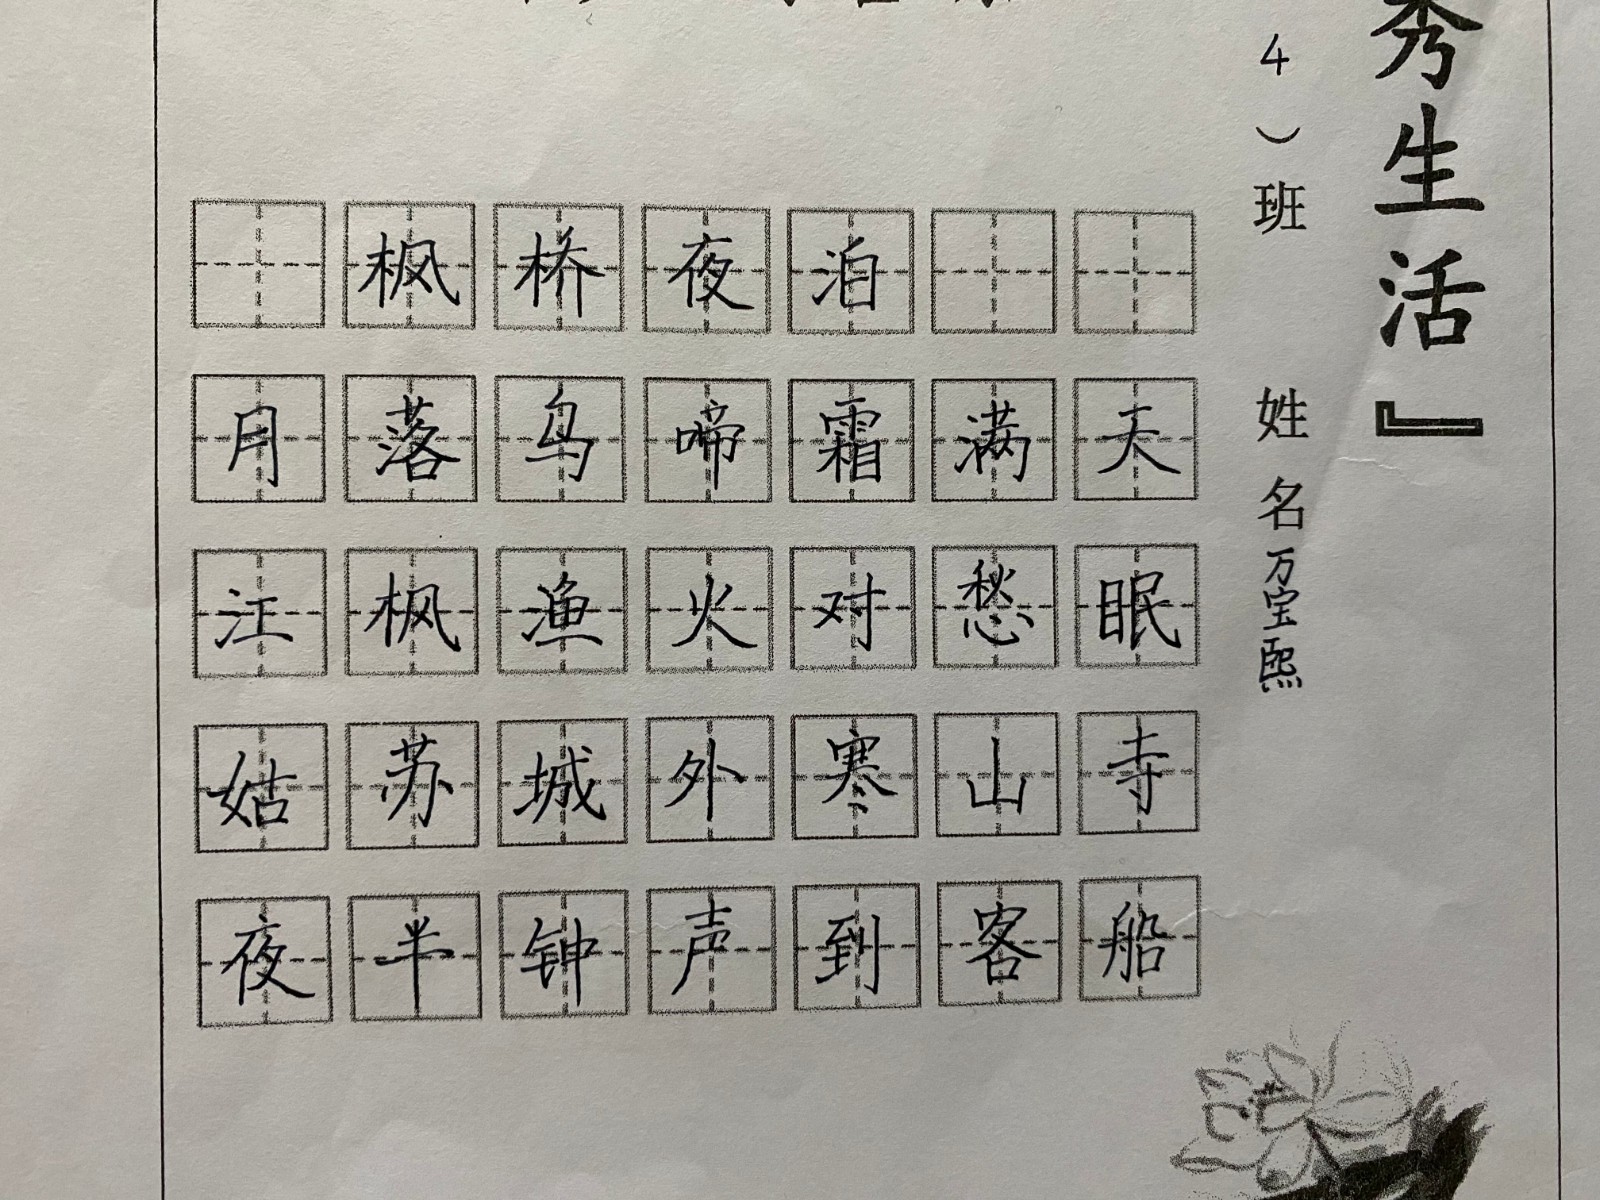 枫桥夜泊
月落鸟啼霜满天
江枫渔火对愁眠
姑苏城外寒山寺
夜半钟声到客船
4）班 姓名万宝熙
秀生活』